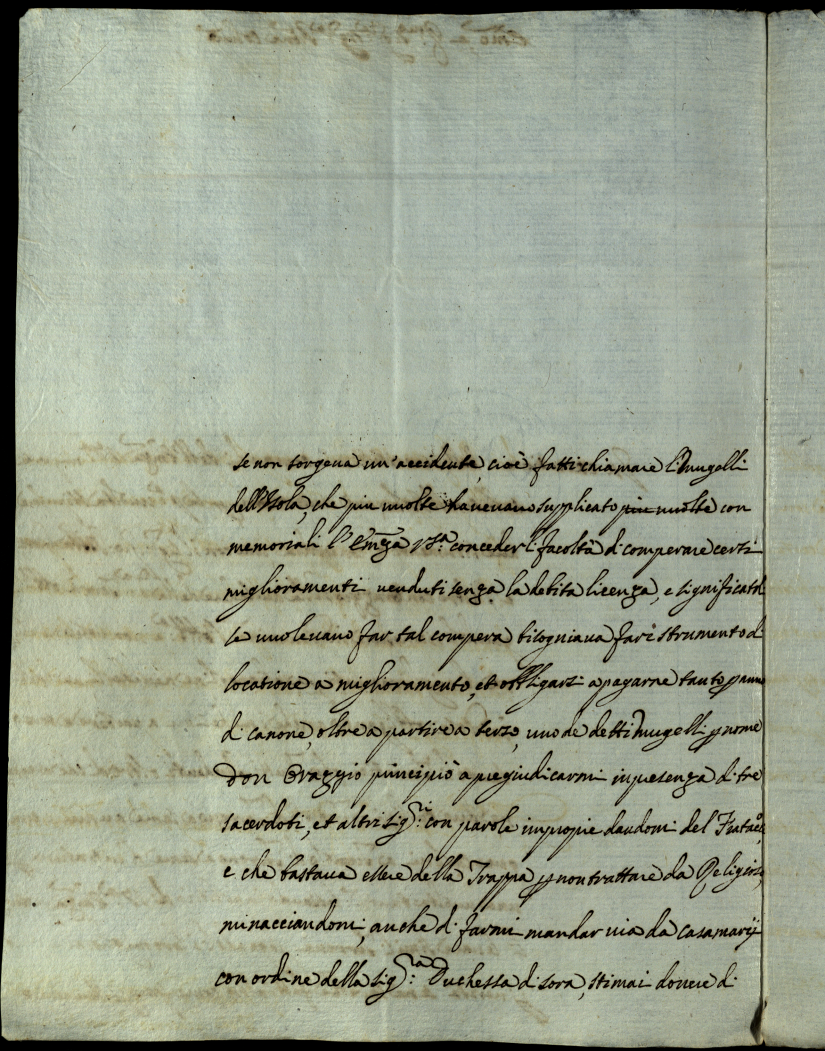 se non sorgeva un'accidente, cioè fatti chiamare li Nugelli
dell'Isola, che piu uolte haueuano supplicato piu uolte con
memoriali l'Em̃za Vsª: conceder li facoltà di comperare certi
miglioramenti uenduti senza la debita licenza, e significatoli
se uuoleuano far tal compera bisogniaua fari strumento di
locatione a miglioramento, et obbligarsi a pagarne tanto p anno
di canone, oltre a partire a terzo, uno de detti Nugelli p nome
Don Oraggio principiò a pregiudicarmi in presenza di tre
sacerdoti, et altri Sigri: con parole improprie dandomi del Frataccio,
e che bastaua essere della Trappa p non trattare da Religioso,
minacciandomi, anche di farmi mandar uia da Casamarij
con ordine della Sigra: Duchessa di Sora, stimai douere di